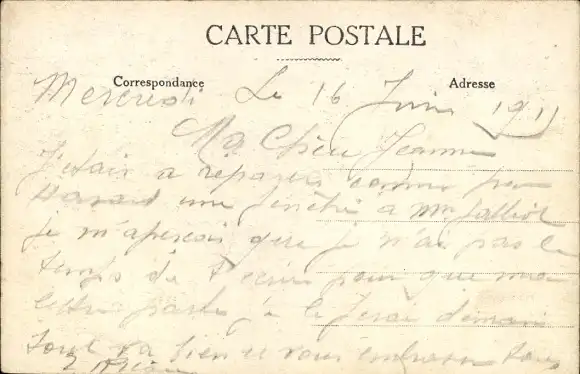 CARTE POSTALE
Correspondance
Adresse
Mercredi Le 16 Juin 1911
Ma Chère Jeanne
J'étais a réparer comme
une fenêtre à Mme
je m'aperçois que je n'ai pas le
temps de t'écrire pour que ma
lettre parte je le ferai demain
Tout va bien et vous embrasse tous